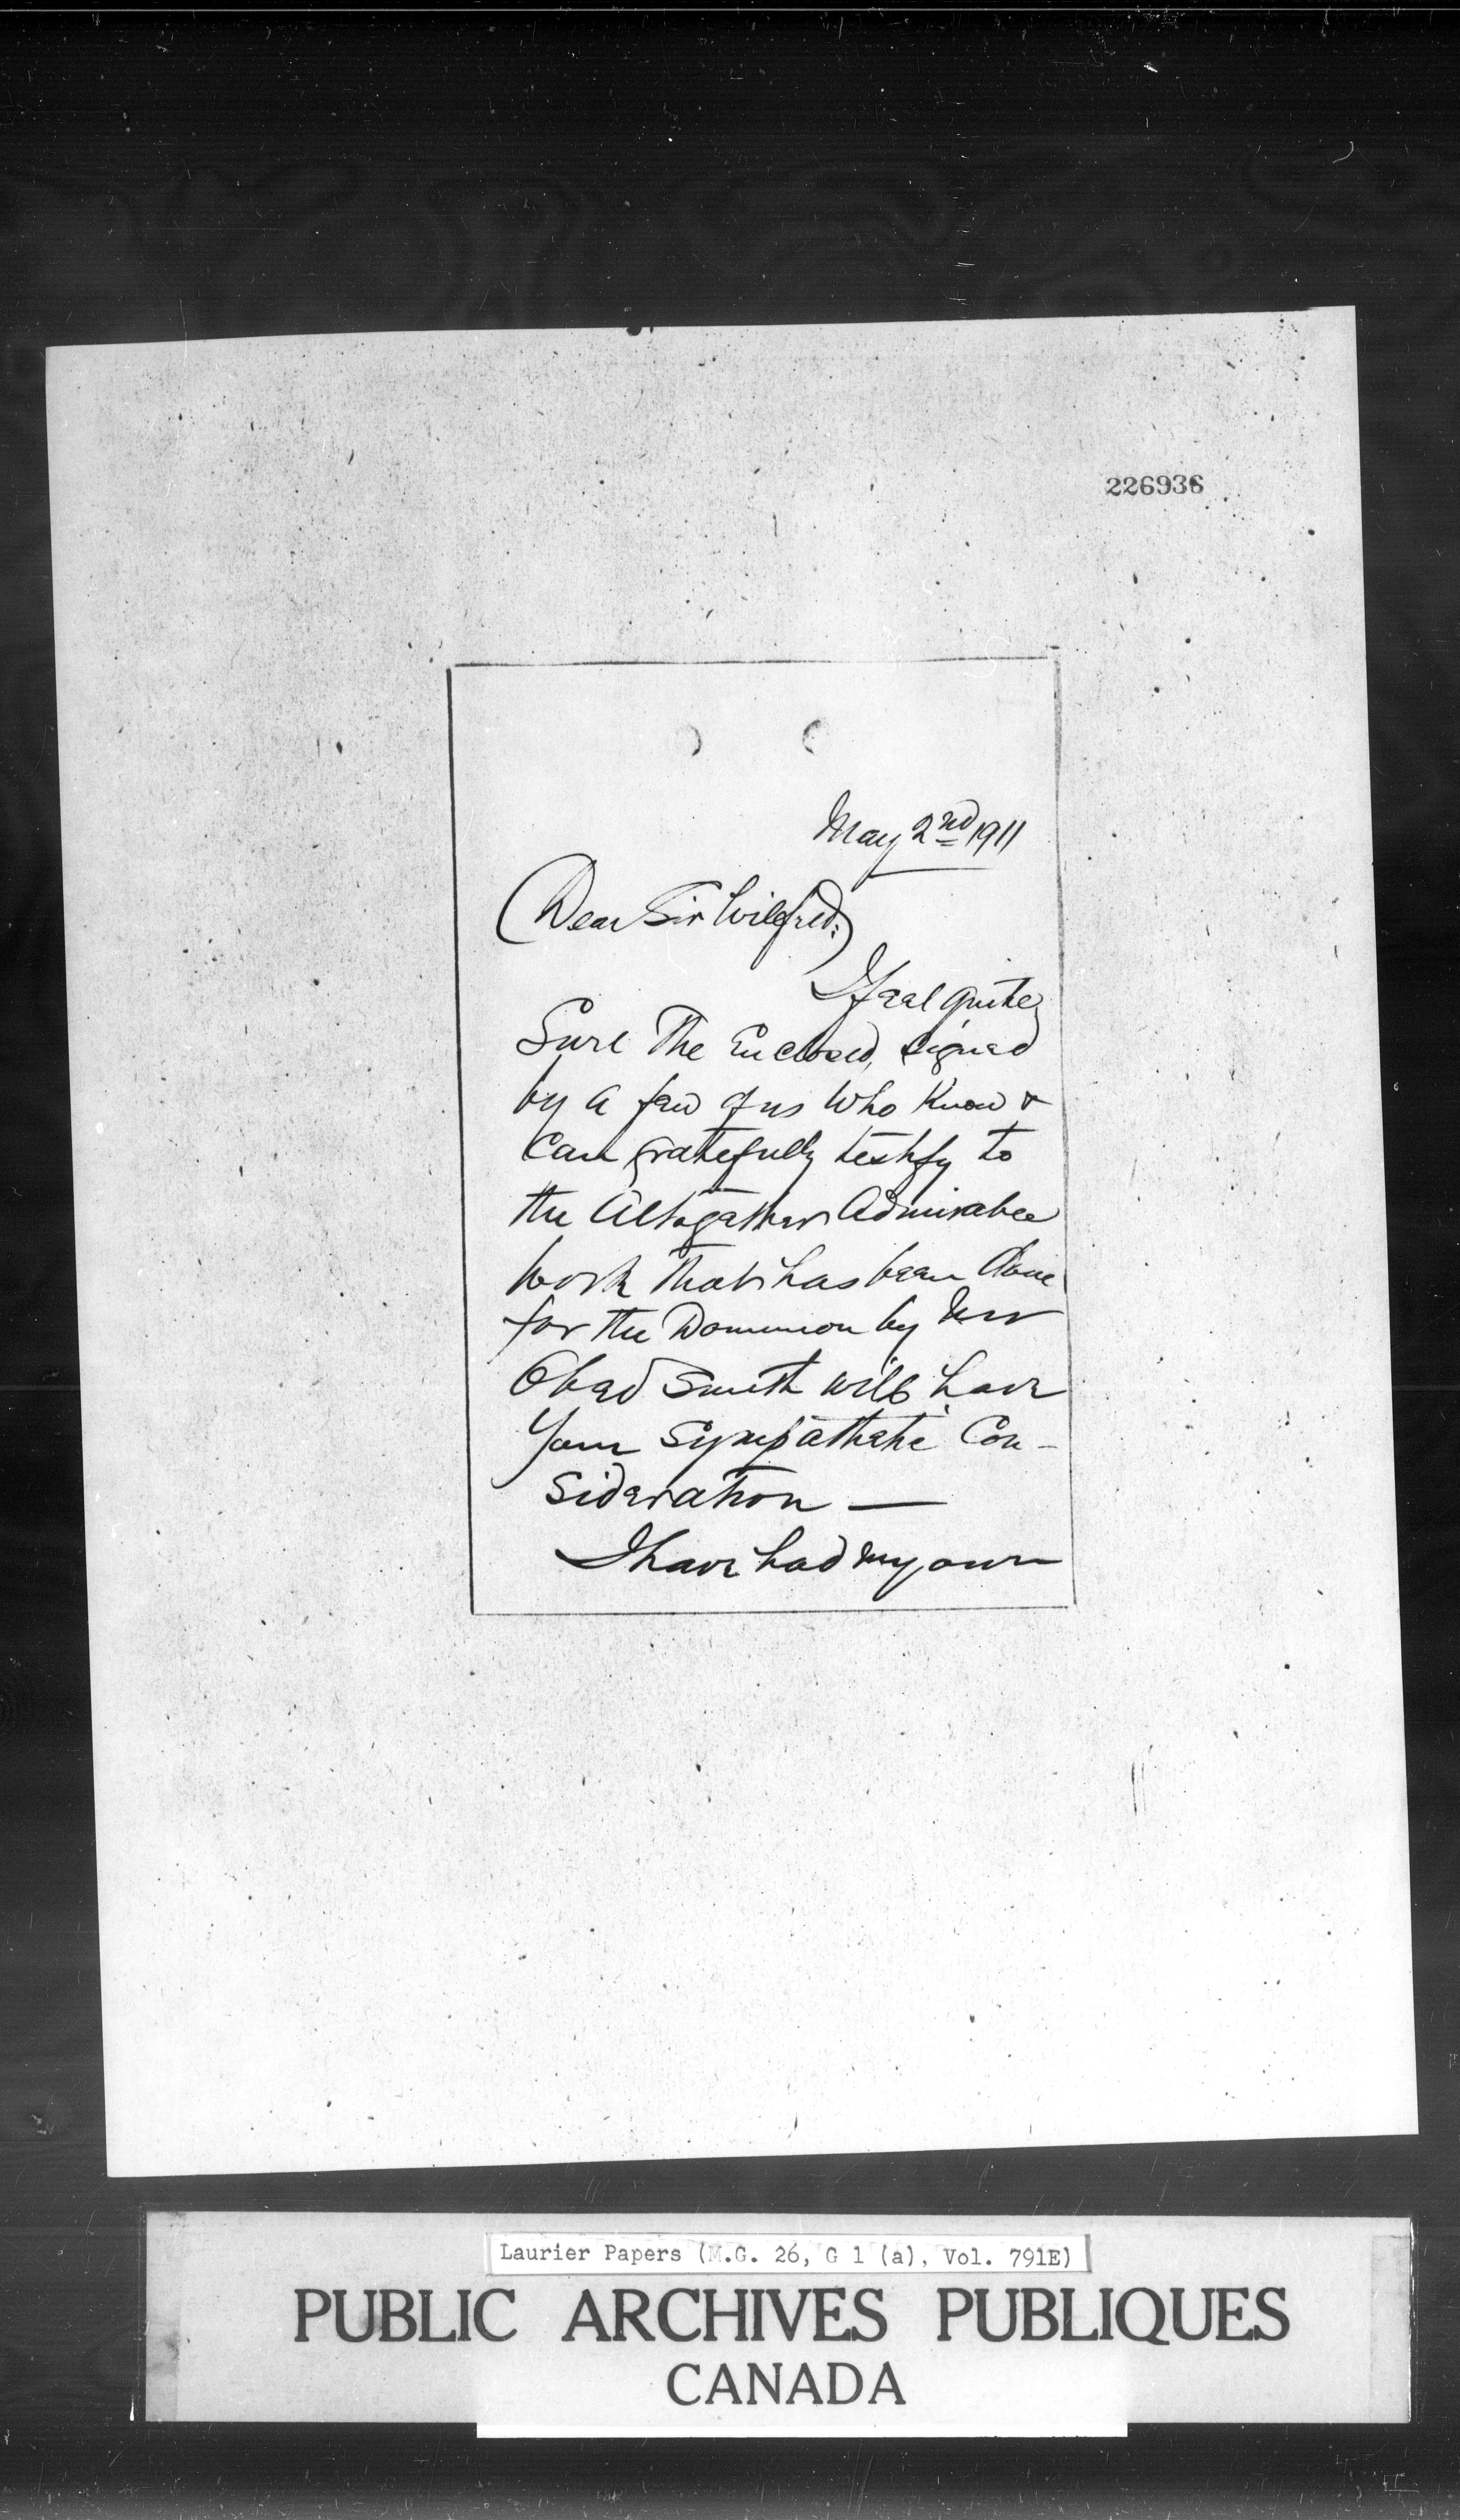 226936
May 2nd 1911
Dear Sir Wilfred:
I feel quite
Sure The Enclosed, signed
by a few of us who know &
can gratefully testify to
the Altogether Admirable
work that has been done
for the Dominion by Mr
Obed Smith will have
Your Sympathetic Con-
sideration —
I have had my own
Laurier Papers (M.G. 26, G 1 (a), Vol. 791E)
PUBLIC ARCHIVES PUBLIQUES
CANADA